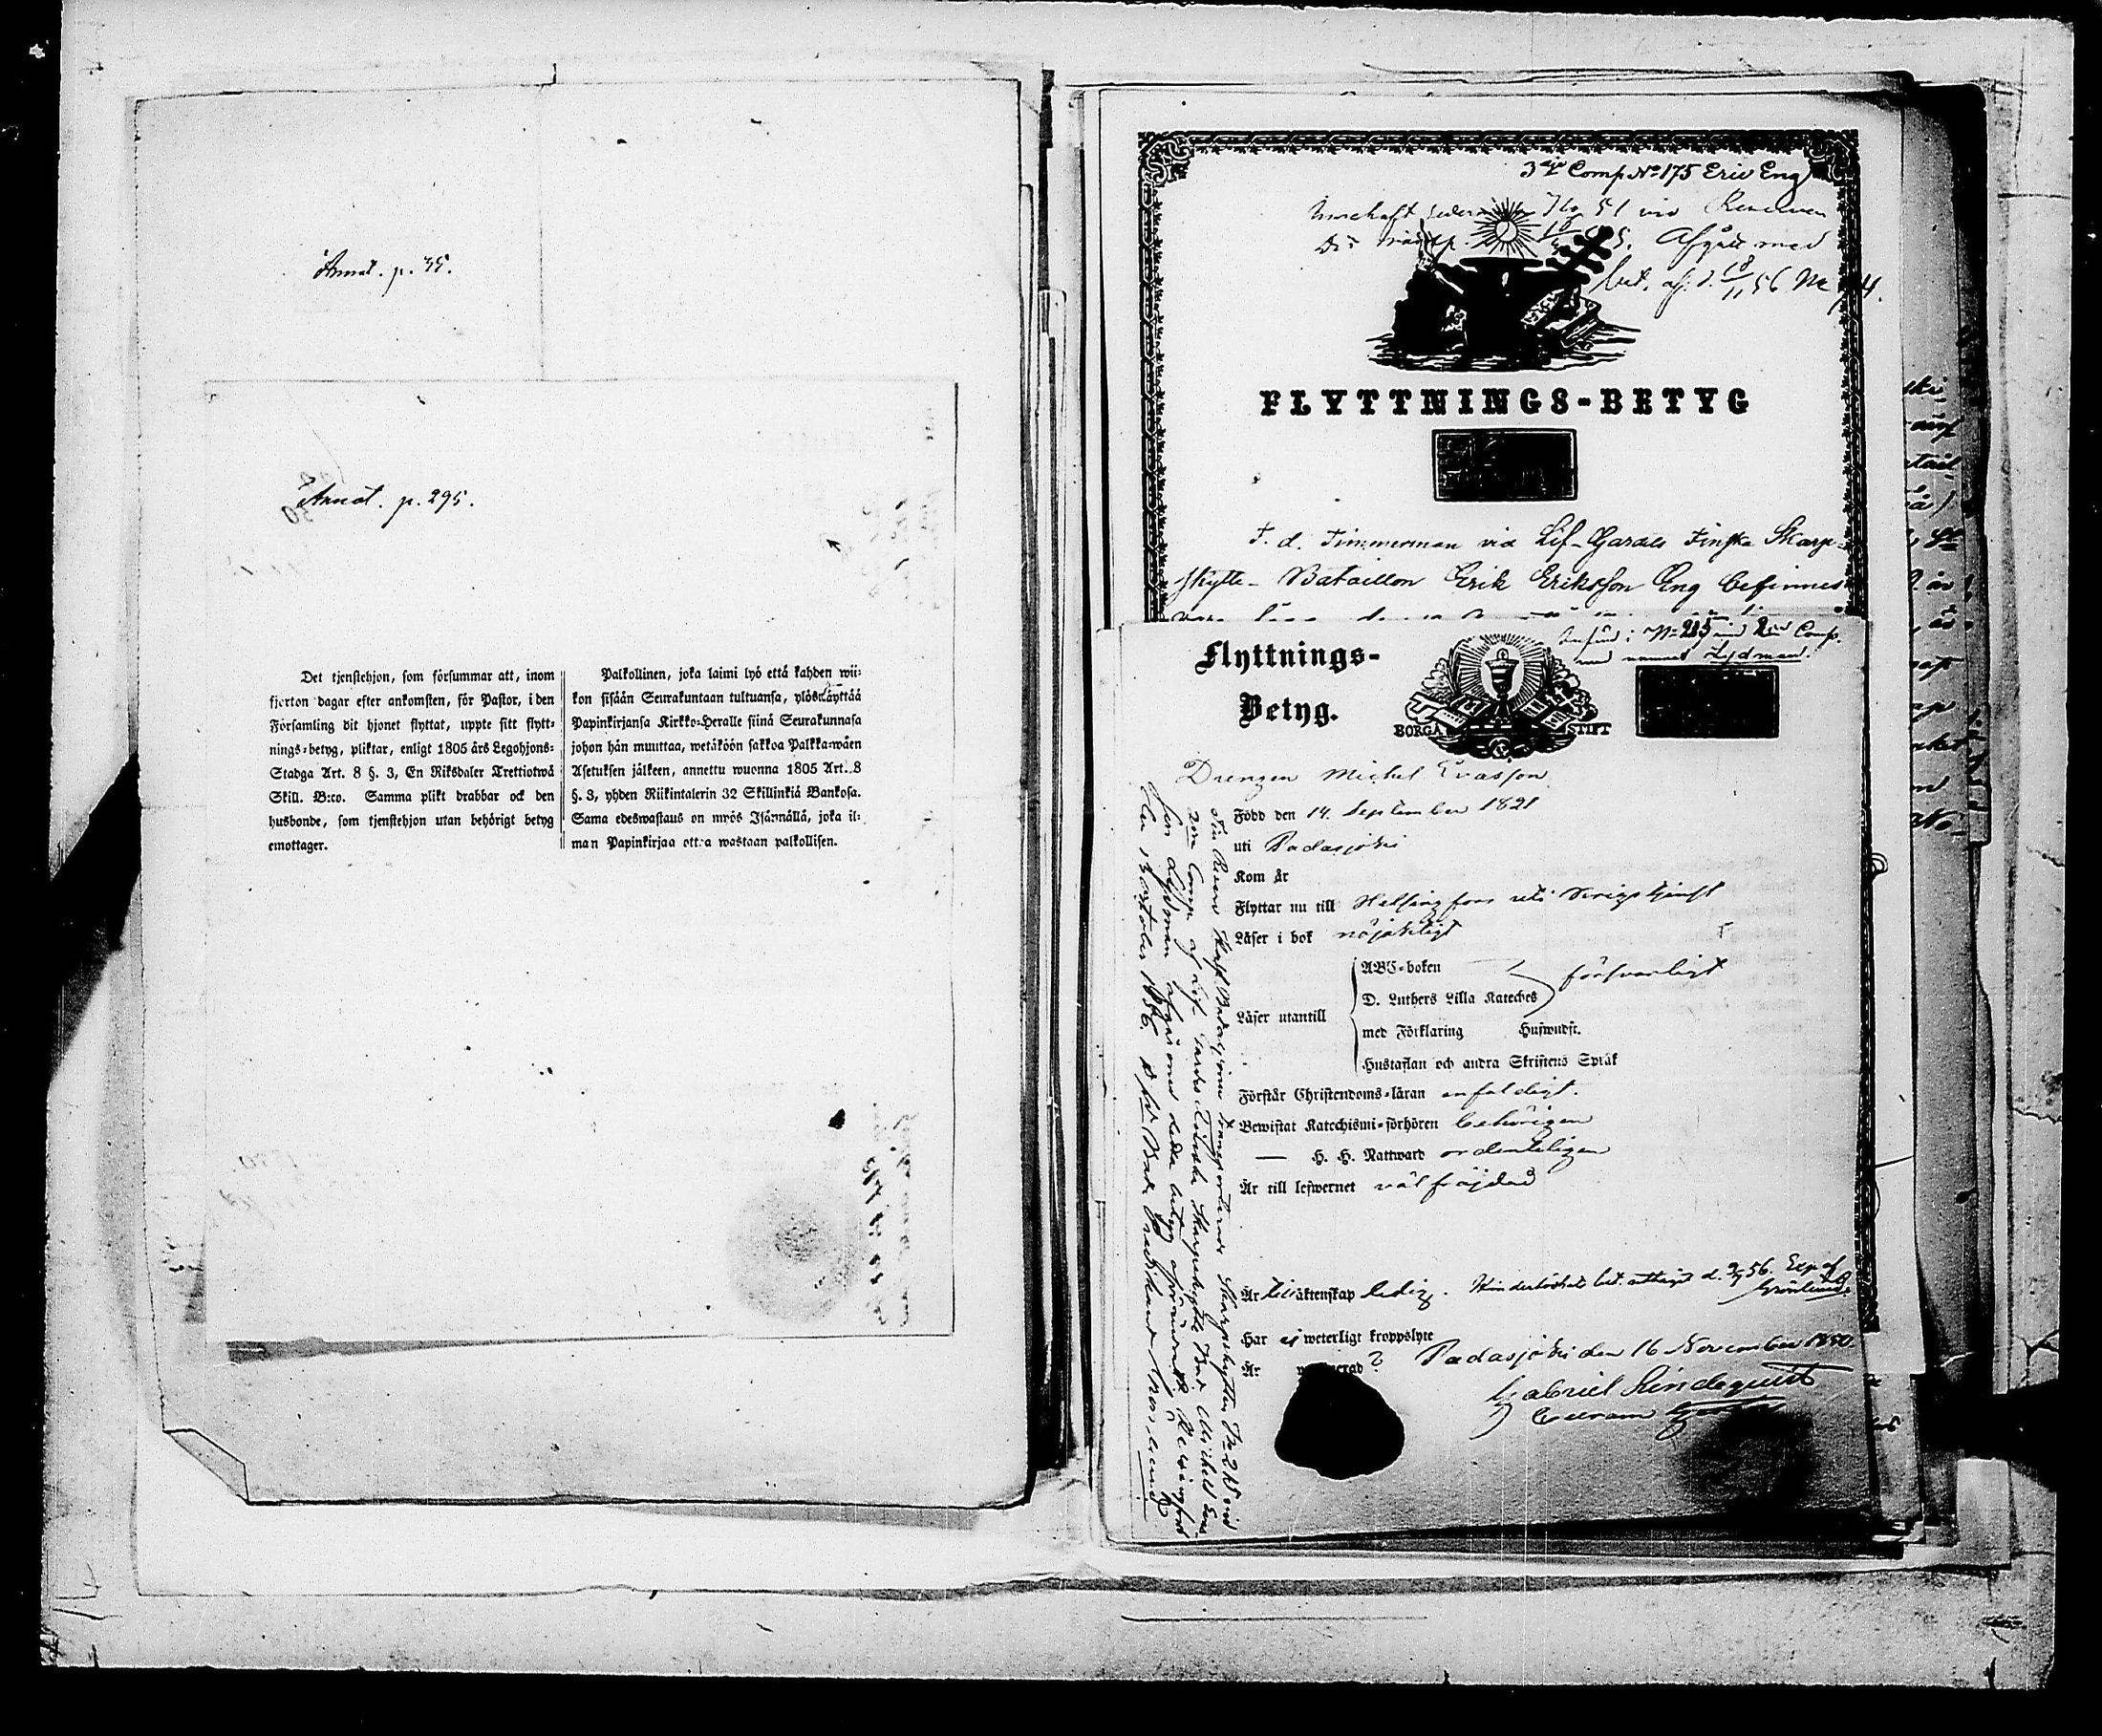 Annot. p. 35.
Annot. p. 295.
Det tjenstehjon, som försummar att, inom
fjorton dagar efter ankomsten, för Pastor, i den
Församling dit hjonet flyttat, uppte sitt flytt-
nings-betyg, pliktar, enligt 1805 års Legohjons-
Stadga Art. 8 §. 3, En Riksdaler Trettiotwå
Skill. B:co. Samma plikt drabbar ock den
husbonde, som tjenstehjon utan behörigt betyg
emottager.
Palkollinen, joka laimi lyö että kahden wii-
kon sisään Seurakuntaan tultuansa, ylösnäyttää
Papinkirjansa Kirkko-Heralle siinä Seurakunnasa
johon hän muuttaa, wetäköön sakkoa Palkka-wäen
Asetuksen jälkeen, annettu wuonna 1805 Art. 8
§. 3, yhden Riikintalerin 32 Skillinkiä Bankosa.
Sama edeswastaus on myös Isännällä, joka il-
man Papinkirjaa ottaa wastaan palkollisen.
3dje Comp No 175 Eric Eng
51 vid
Afgått med
bet. af d. 18/11 56 No
FLYTTNINGS-BETYG
F. d. Timmerman vid Lif-Gardes Finska Skarp-
skytte-Bataillon Erik Eriksson Eng befinnes
Införd i No 215 vid 2dra Comp.
med namnet Lydman.
Flyttnings-
Betyg.
BORGÅ STIFT
Drengen Michel Evasson
Född den 14. September 1821
uti Padasjoki
Kom år
Flyttar nu till Helsingfors uti Krigstjenst
Läser i bok nöjaktigt
Läser utantill
ABC-boken
D. Luthers Lilla Kateches
försvarligt
med Förklaring
Hustaflan och andra Skriftens Språk
Förstår Christendoms-läran enfaldigt.
Bewistat Katechismi-förhören behörigen
— H. H. Nattward ordentligen
Är till lefwernet välfräjdad
Är till äktenskap ledig. Hinderlöshets bet. uttagit d. 9/9 56. Exp af
Grönlund
Har ej weterligt kroppslyte
Är
Padasjoki den 16 November 1850.
Gabriel Lindequist
2dra Comp. af Lif-Gardes Finska Skarpskytte Bat. Michel Evas
son Lydman afgår med detta betyg
den 13 October 1856.